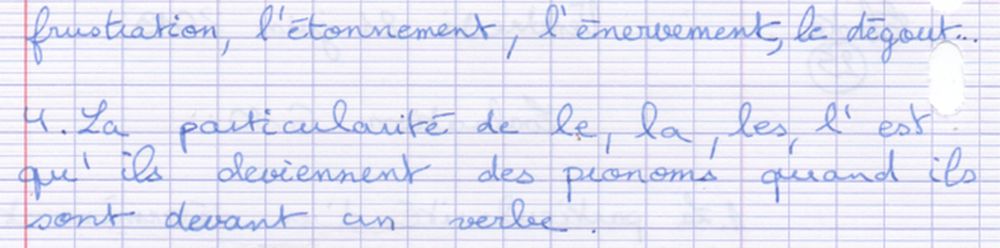 frustration, l'étonnement, l'énervement, le dégout...
4. La particularité de le, la, les, l' est
qu'ils deviennent des pronoms quand ils
sont devant un verbe.